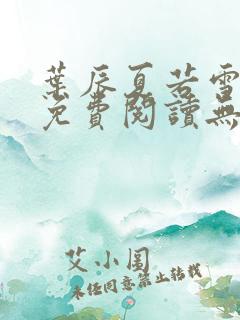 葉辰夏若雪
免費閱讀無
艾小圖
未經同意禁止轉載